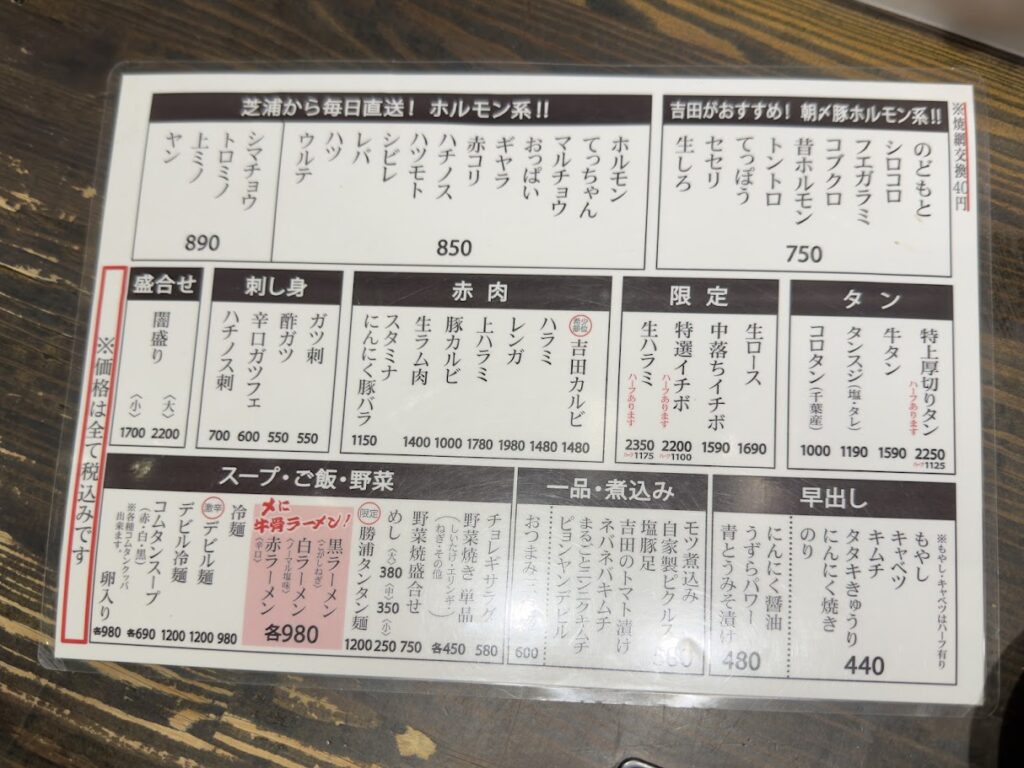 ※焼網交換40円
吉田がおすすめ！ 朝〆豚ホルモン系!!
のどもと
シロコロ
フエガラミ
コブクロ
昔ホルモン
トントロ
てっぽう
セセリ
生しろ
750
芝浦から毎日直送！ ホルモン系!!
ホルモン
てっちゃん
マルチョウ
おっぱい
ギャラ
赤コリ
ハチノス
ハツモト
シビレ
レバ
ハツ
ウルテ
850
シマチョウ
トロミノ
上ミノ
ヤン
890
タン
特上厚切りタン
ハーフあります
2250
ハーフ1125
牛タン
1590
タンスジ(塩・タレ)
1190
コロタン(千葉産)
1000
限定
生ロース
1690
中落ちイチボ
1590
特選イチボ
ハーフあります
2200
ハーフ1100
生ハラミ
ハーフあります
2350
ハーフ1175
赤肉
希少部位
吉田カルビ
1480
ハラミ
1480
レンガ
1980
上ハラミ
1780
豚カルビ
1000
生ラム肉
1400
スタミナ
にんにく豚バラ
1150
刺し身
ガツ刺
550
酢ガツ
550
辛口ガツフェ
600
ハチノス刺
700
盛合せ
闇盛り
〈大〉
2200
〈小〉
1700
※価格は全て税込みです
早出し
※もやし・キャベツはハーフ有り
もやし
キャベツ
キムチ
タタキきゅうり
にんにく焼き
のり
440
にんにく醤油
うずらパワー
青とうみそ漬け
480
一品・煮込み
モツ煮込み
自家製ピクルス
塩豚足
吉田のトマト漬け
ネバネバキムチ
まるごとニンニクキムチ
ピョンヤンデビル
580
おつまみ
600
スープ・ご飯・野菜
チョレギサラダ
580
野菜焼き 単品
(しいたけ・エリンギ・
ねぎ・その他)
各450
野菜焼盛合せ
750
めし
〈大〉380
〈中〉350
〈小〉250
限定
勝浦タンタン麺
1200
〆に
牛骨ラーメン！
黒ラーメン
(こがしねぎ)
白ラーメン
(ノーマル塩味)
赤ラーメン
(辛口)
各980
冷麺
980
激辛
デビル麺
1200
デビル冷麺
1200
コムタンスープ
(赤・白・黒)
※各種コムタンクッパ
出来ます。
各690
卵入り
各980